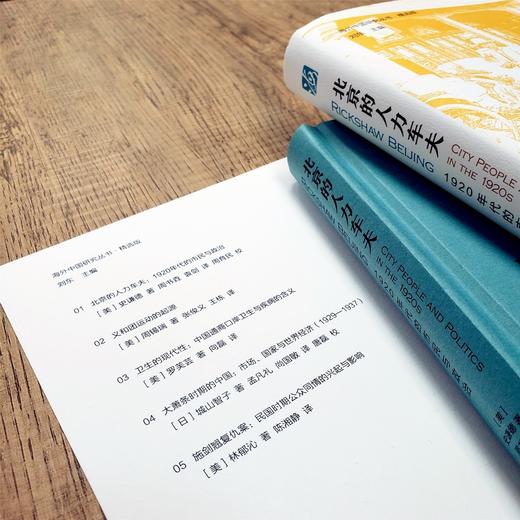 海外中国研究丛书·精选版
刘东 主编
北京的人力车夫
RICKSHAW BEIJING
CITY PEOPLE
IN THE 1920s
1920年代的
北京的人力车夫
RICKSHAW BEIJING
CITY PEOPLE AND POLITICS
IN THE 1920s
1920年代的市民与政治
[美]
海外中国研究丛书·精选版
刘东 主编
01 北京的人力车夫：1920年代的市民与政治
[美] 史谦德 著 周书垚 袁剑 译 周育民 校
02 义和团运动的起源
[美] 周锡瑞 著 张俊义 王栋 译
03 卫生的现代性：中国通商口岸卫生与疾病的含义
[美] 罗芙芸 著 向磊 译
04 大萧条时期的中国：市场、国家与世界经济（1929—1937）
[日] 城山智子 著 孟凡礼 尚国敏 译 唐磊 校
05 施剑翘复仇案：民国时期公众同情的兴起与影响
[美] 林郁沁 著 陈湘静 译